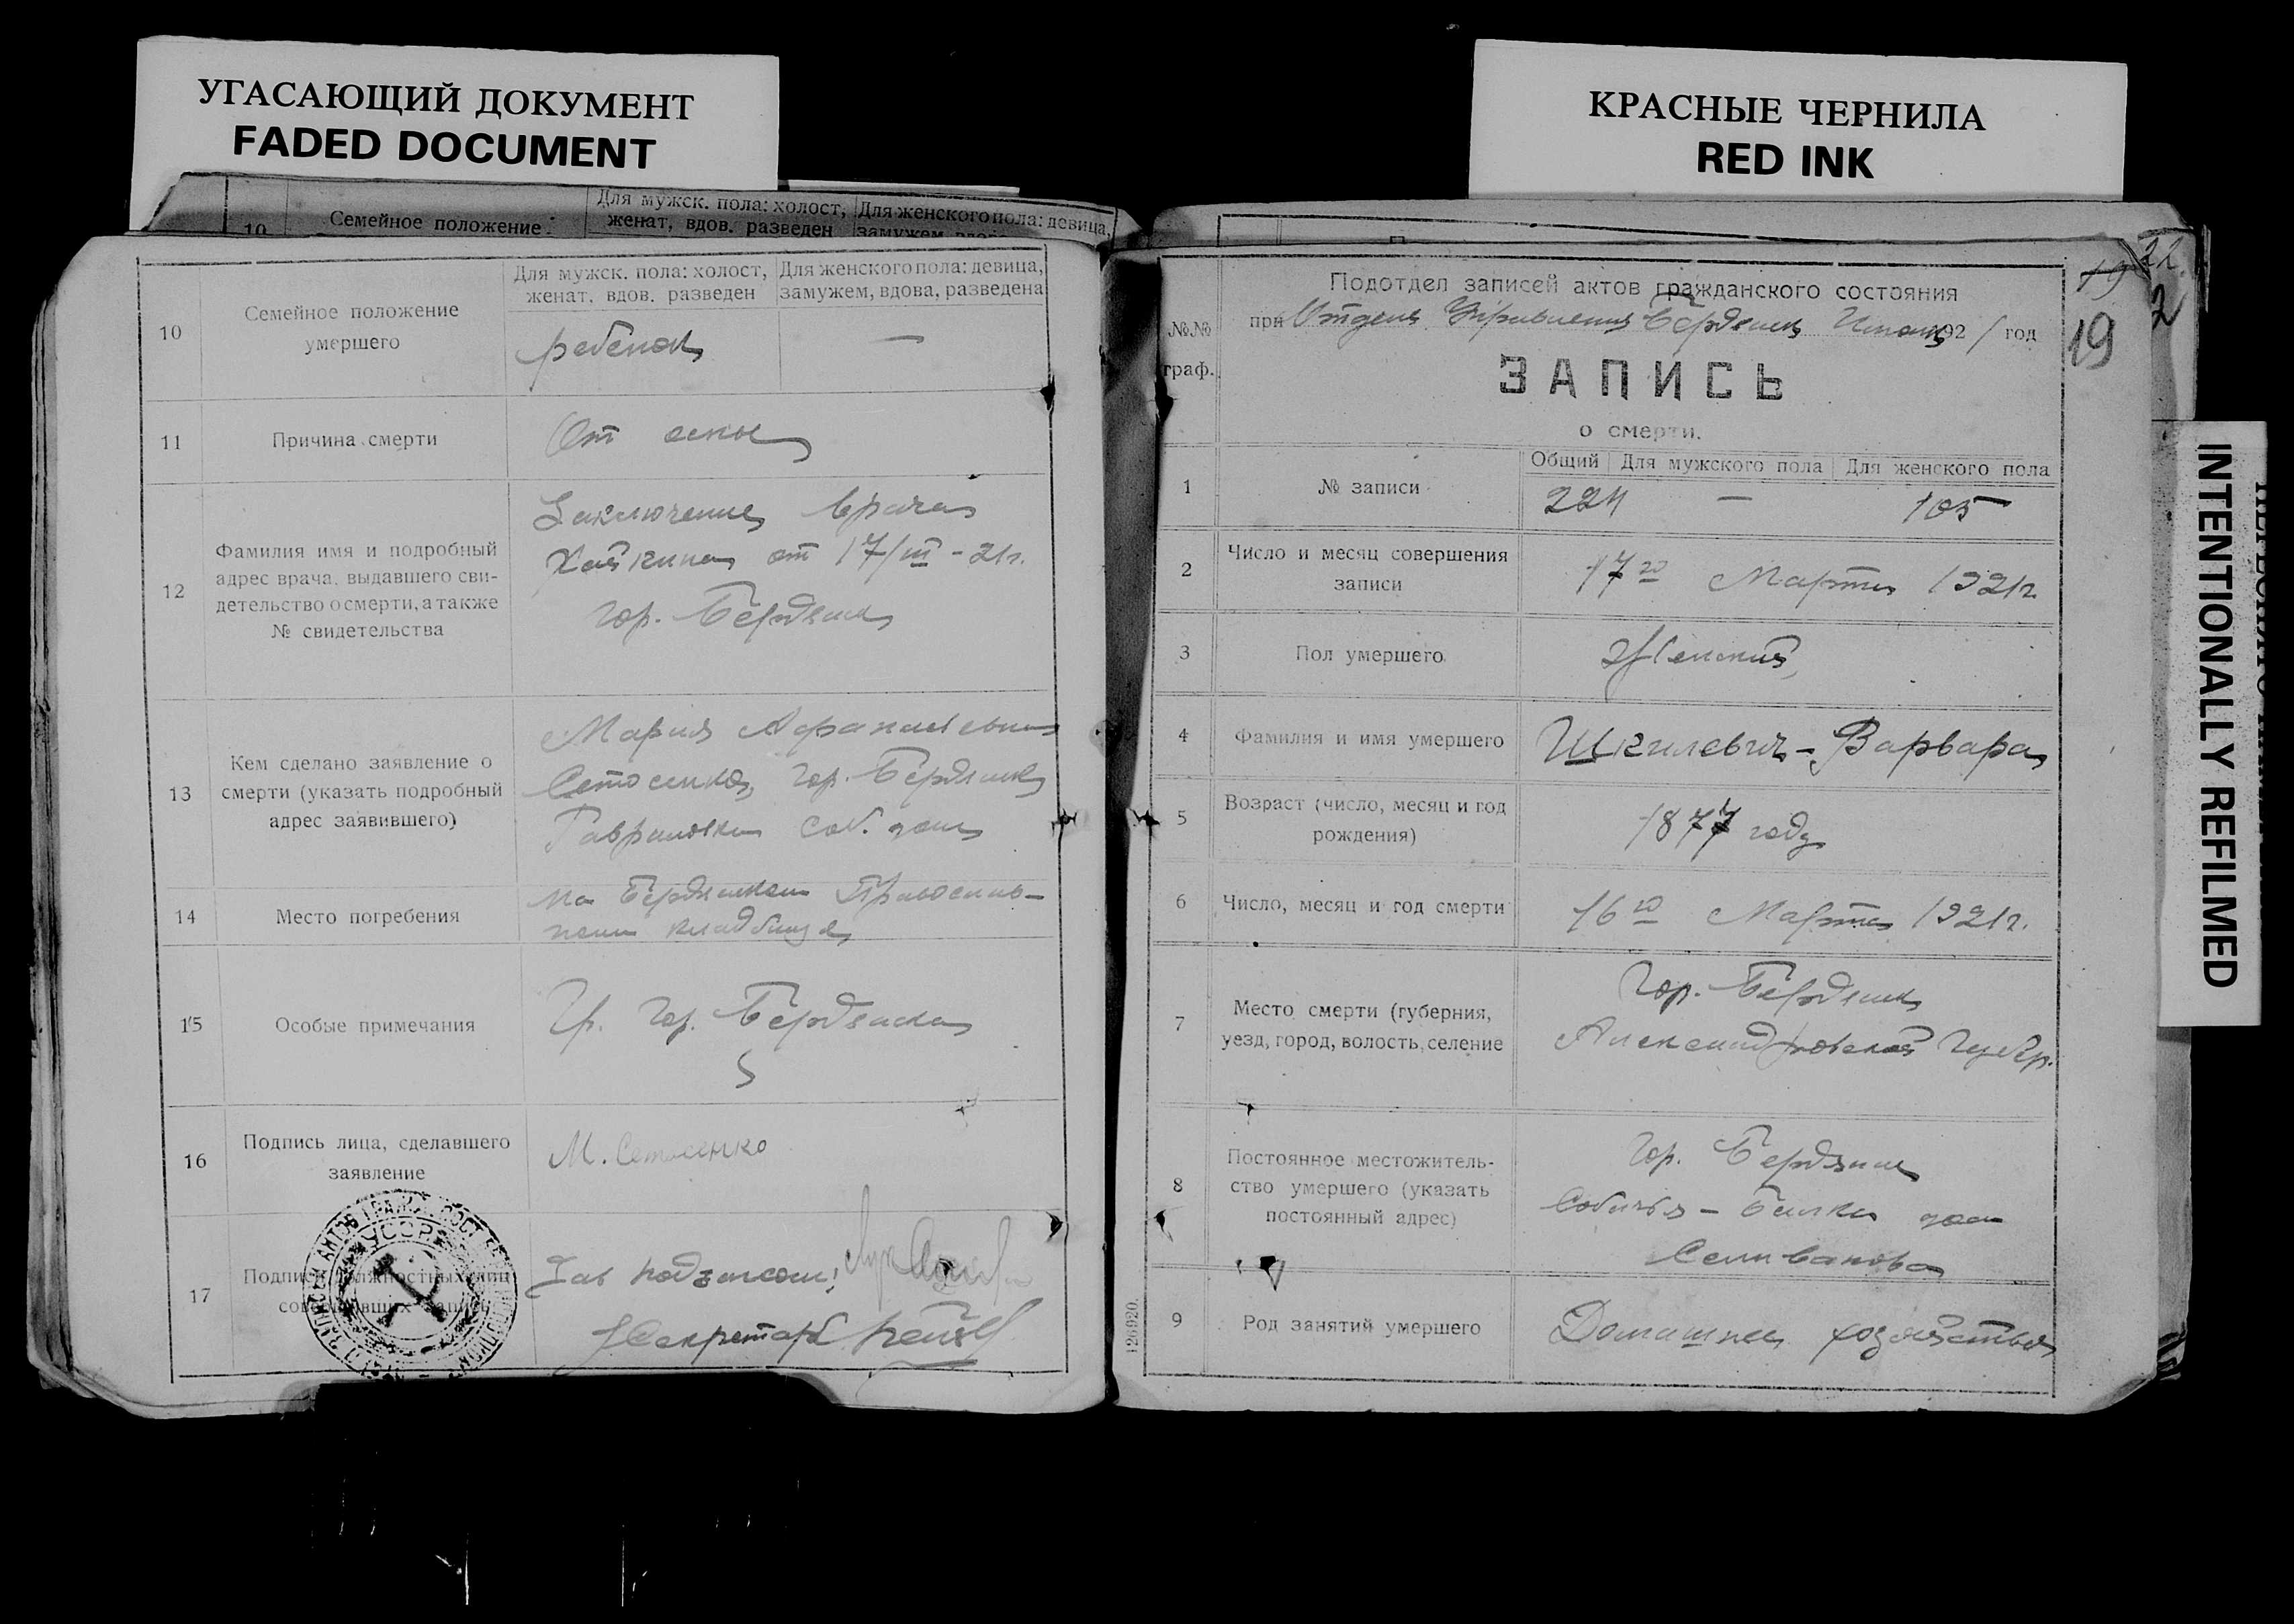 УГАСАЮЩИЙ ДОКУМЕНТ
FADED DOCUMENT
КРАСНЫЕ ЧЕРНИЛА
RED INK
INTENTIONALLY REFILMED
10 Семейное положение
Для мужск. пола: холост, женат, вдов. разведен
Для женского пола: девица,
10
Семейное положение
умершего
Для мужск. пола: холост,
женат, вдов. разведен
Для женского пола: девица,
замужем, вдова, разведена
ребенок
—
11
Причина смерти
От оспы
12
Фамилия имя и подробный
адрес врача, выдавшего сви-
детельство о смерти, а также
№ свидетельства
Заключение врача
Хайкина от 17/III - 21г.
гор. Бердянск
13
Кем сделано заявление о
смерти (указать подробный
адрес заявившего)
Мария Афанасьевна
гор. Бердянск
соб. дом
14
Место погребения
на Бердянском Православ-
ном кладбище
15
Особые примечания
Гр. гор. Бердянска
16
Подпись лица, сделавшего
заявление
М.
17
Подписи должностных лиц
совершивших запись
УССР
Зав подзагсом:
Секретарь
22
19
2
19
Подотдел записей актов гражданского состояния
при Отделе Управления Бердянск 1921 год
№№
граф.
ЗАПИСЬ
о смерти.
1
№ записи
Общий
Для мужского пола
Для женского пола
224
—
105
2
Число и месяц совершения
записи
17го Марта 1921г.
3
Пол умершего
Женский
4
Фамилия и имя умершего
Шкилевич - Варвара
5
Возраст (число, месяц и год
рождения)
1877 году
6
Число, месяц и год смерти
16го Марта 1921г.
7
Место смерти (губерния,
уезд, город, волость, селение
Гор. Бердянск
Александровской Губер.
8
Постоянное местожитель-
ство умершего (указать
постоянный адрес)
Гор. Бердянск
Собачья - Балка дом
Селиванова
9
Род занятий умершего
Домашнее хозяйство
126920